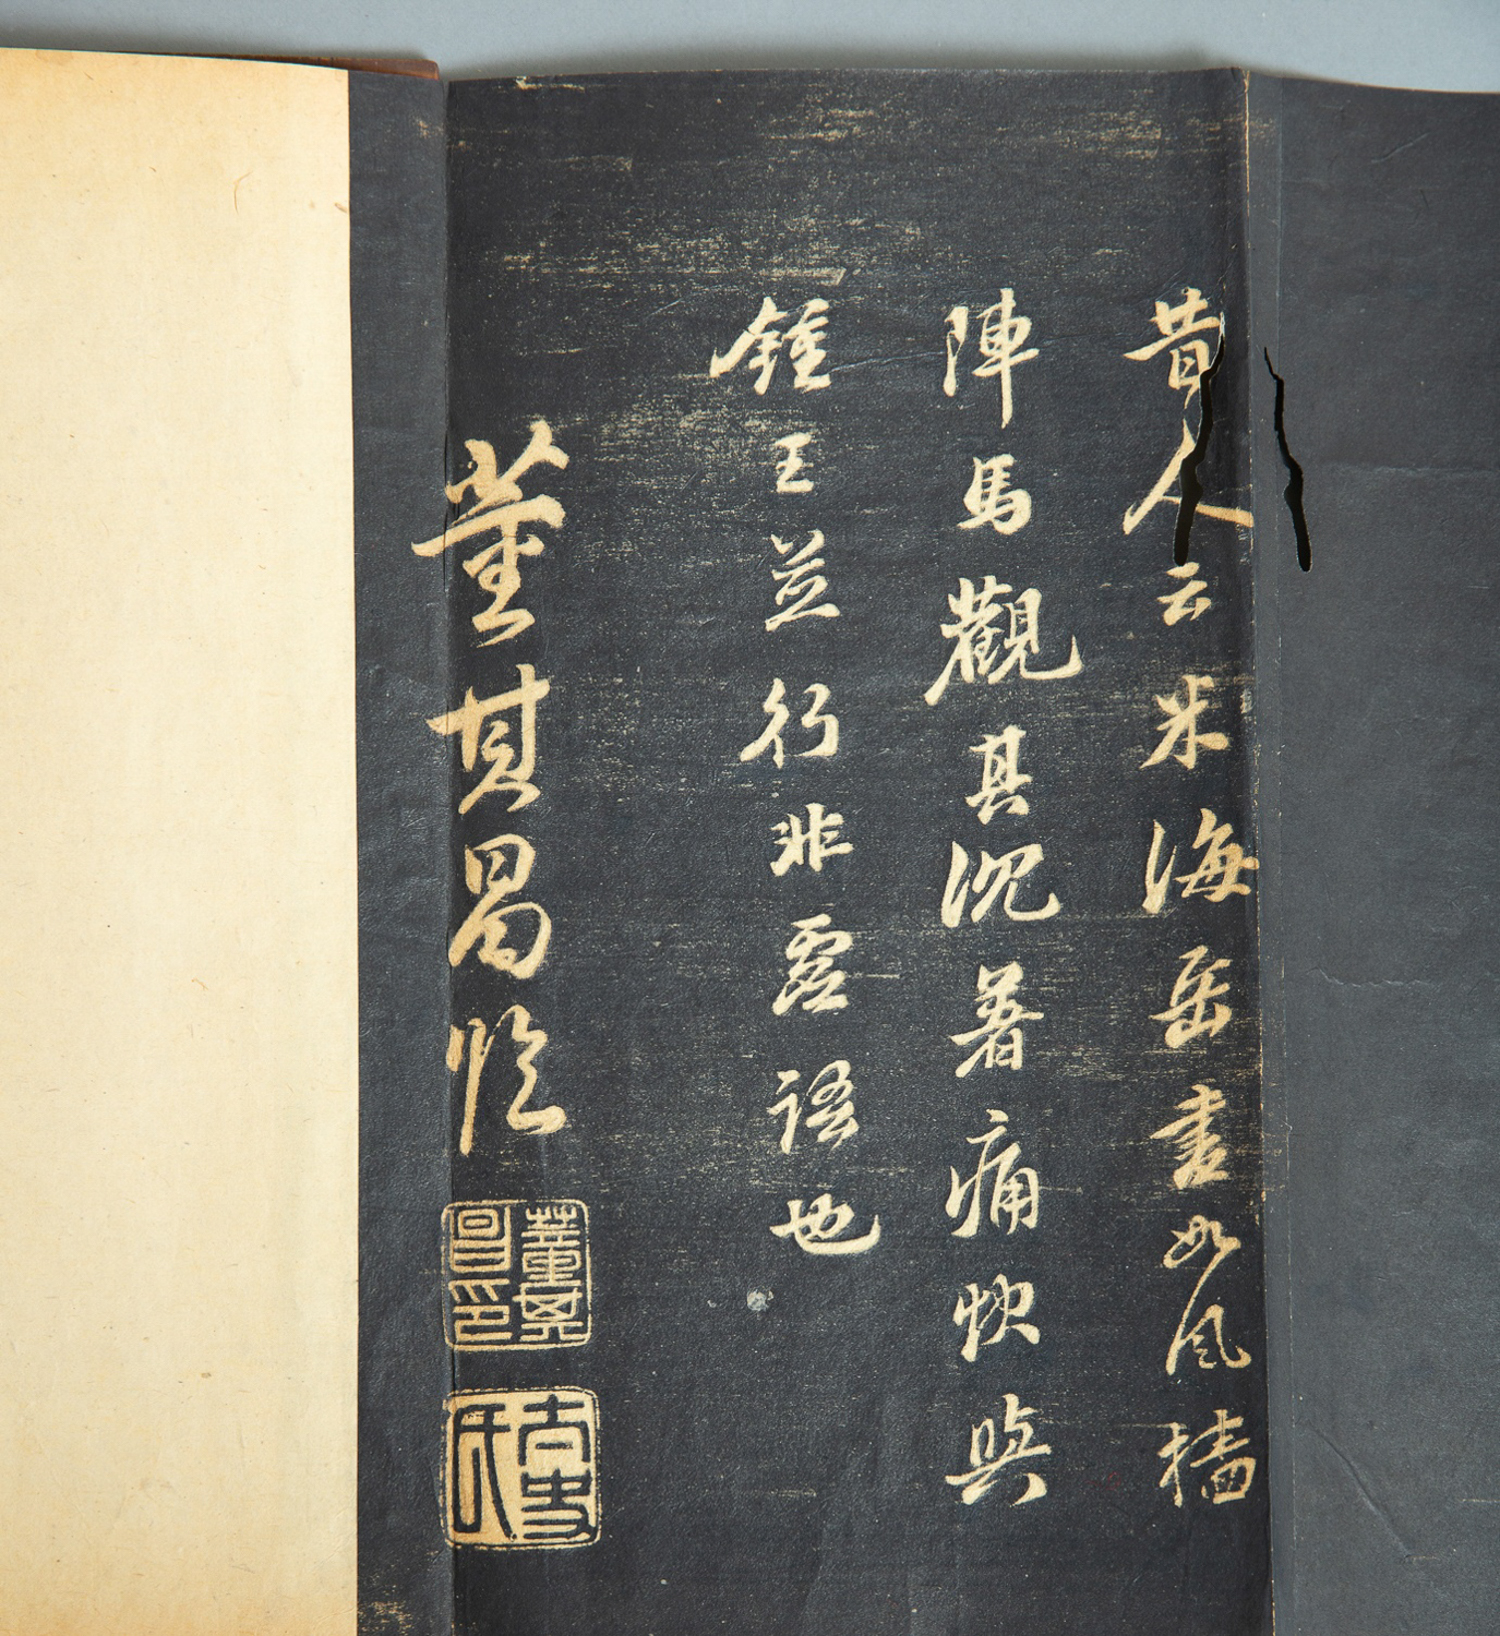 昔人云米海岳書如風檣
陣馬觀其沉著痛快與
鍾王並行非虛語也
董其昌臨
董其昌印
太史氏